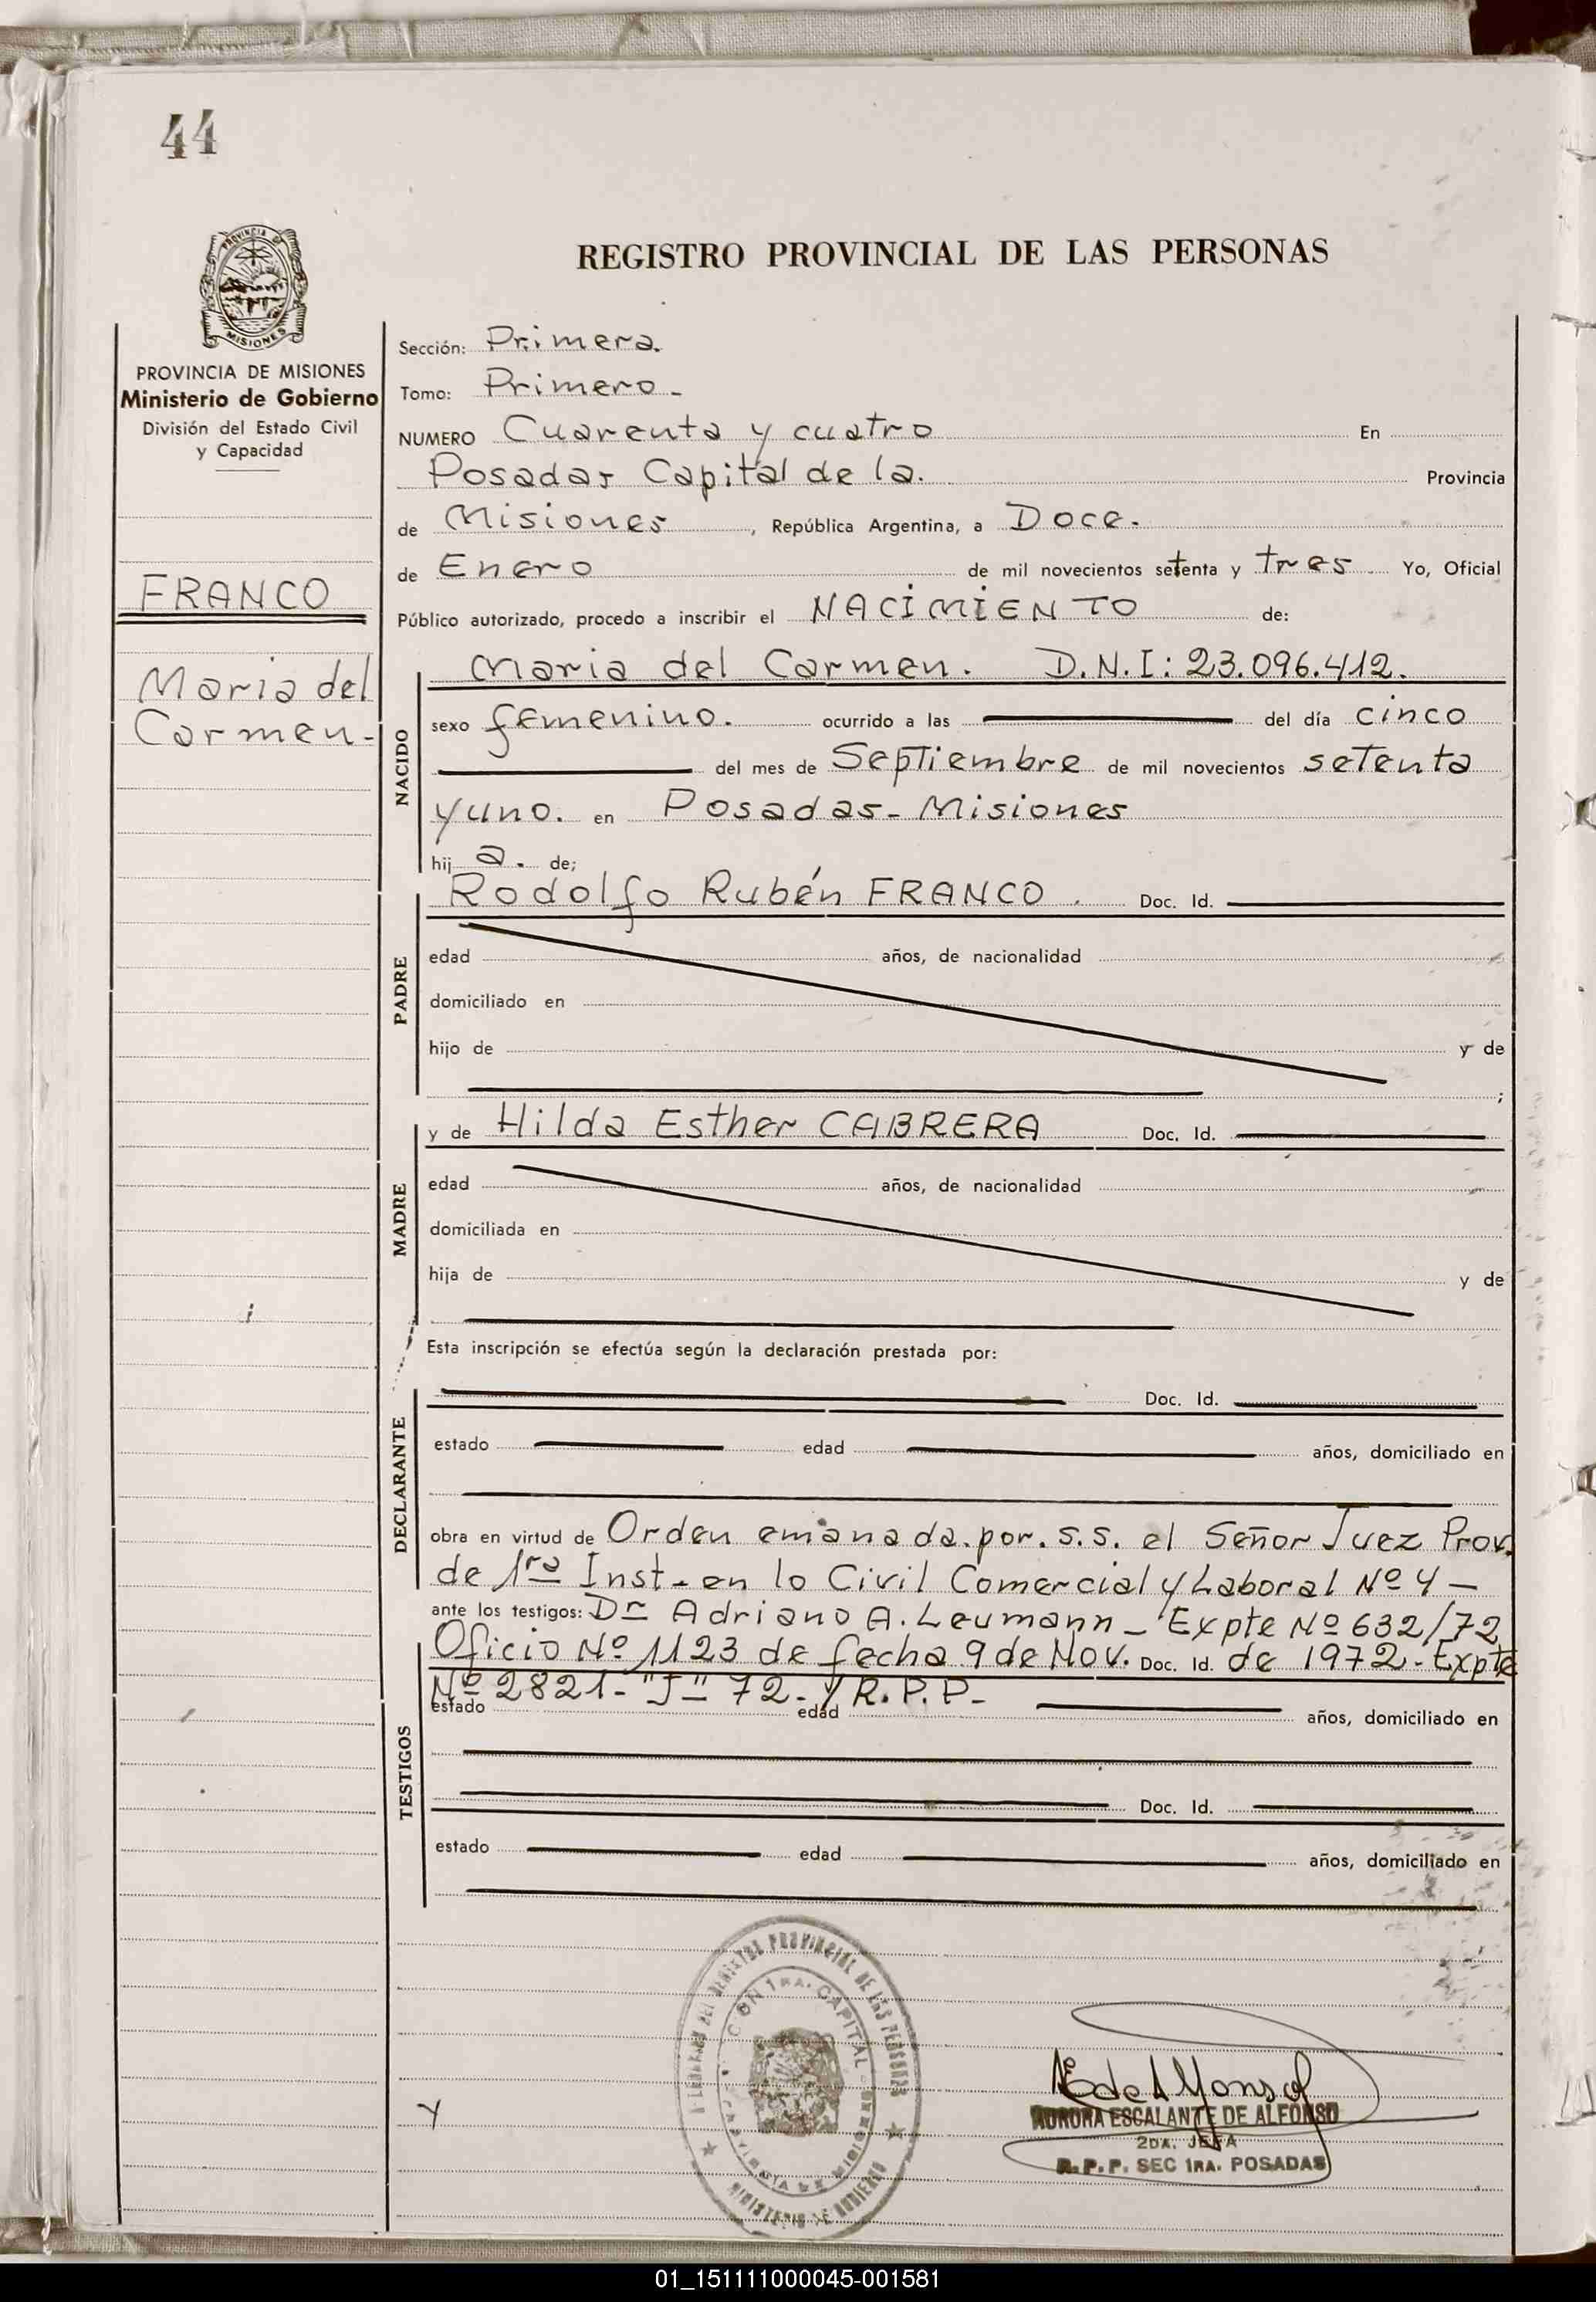 44
PROVINCIA DE
MISIONES
REGISTRO PROVINCIAL DE LAS PERSONAS
PROVINCIA DE MISIONES
Ministerio de Gobierno
División del Estado Civil
y Capacidad
FRANCO
Maria del
Carmen-
Sección: Primera.
Tomo: Primero-
NUMERO Cuarenta y cuatro En
Posadas Capital de la. Provincia
de Misiones, República Argentina, a Doce.
de Enero de mil novecientos setenta y tres Yo, Oficial
Público autorizado, procedo a inscribir el NACIMIENTO de:
NACIDO
Maria del Carmen. D.N.I: 23.096.412.
sexo femenino. ocurrido a las del día cinco
del mes de Septiembre de mil novecientos setenta
y uno. en Posadas- Misiones
hij a. de;
PADRE
Rodolfo Rubén FRANCO. Doc. Id.
edad años, de nacionalidad
domiciliado en
hijo de y de
;
MADRE
y de Hilda Esther CABRERA Doc. Id.
edad años, de nacionalidad
domiciliada en
hija de y de
Esta inscripción se efectúa según la declaración prestada por:
DECLARANTE
Doc. Id.
estado edad años, domiciliado en
obra en virtud de Orden emanada.por.s.s. el Señor Juez Prov.
de 1ra Inst- en lo Civil Comercial y Laboral Nº 4-
ante los testigos: Dr Adriano A. Leumann- Expte Nº 632/72
Oficio Nº 1123 de fecha 9 de Nov. Doc. Id. de 1972- Expte
Nº 2821-"J"-72-/R.P.P-
TESTIGOS
estado edad años, domiciliado en
Doc. Id.
estado edad años, domiciliado en
REGISTRO PROVINCIAL DE LAS PERSONAS
CION 1RA. CAPITAL
MINISTERIO DE GOBIERNO
AURORA ESCALANTE DE ALFONSO
2DA. JEFA
R.P.P. SEC 1RA. POSADAS
01_151111000045-001581